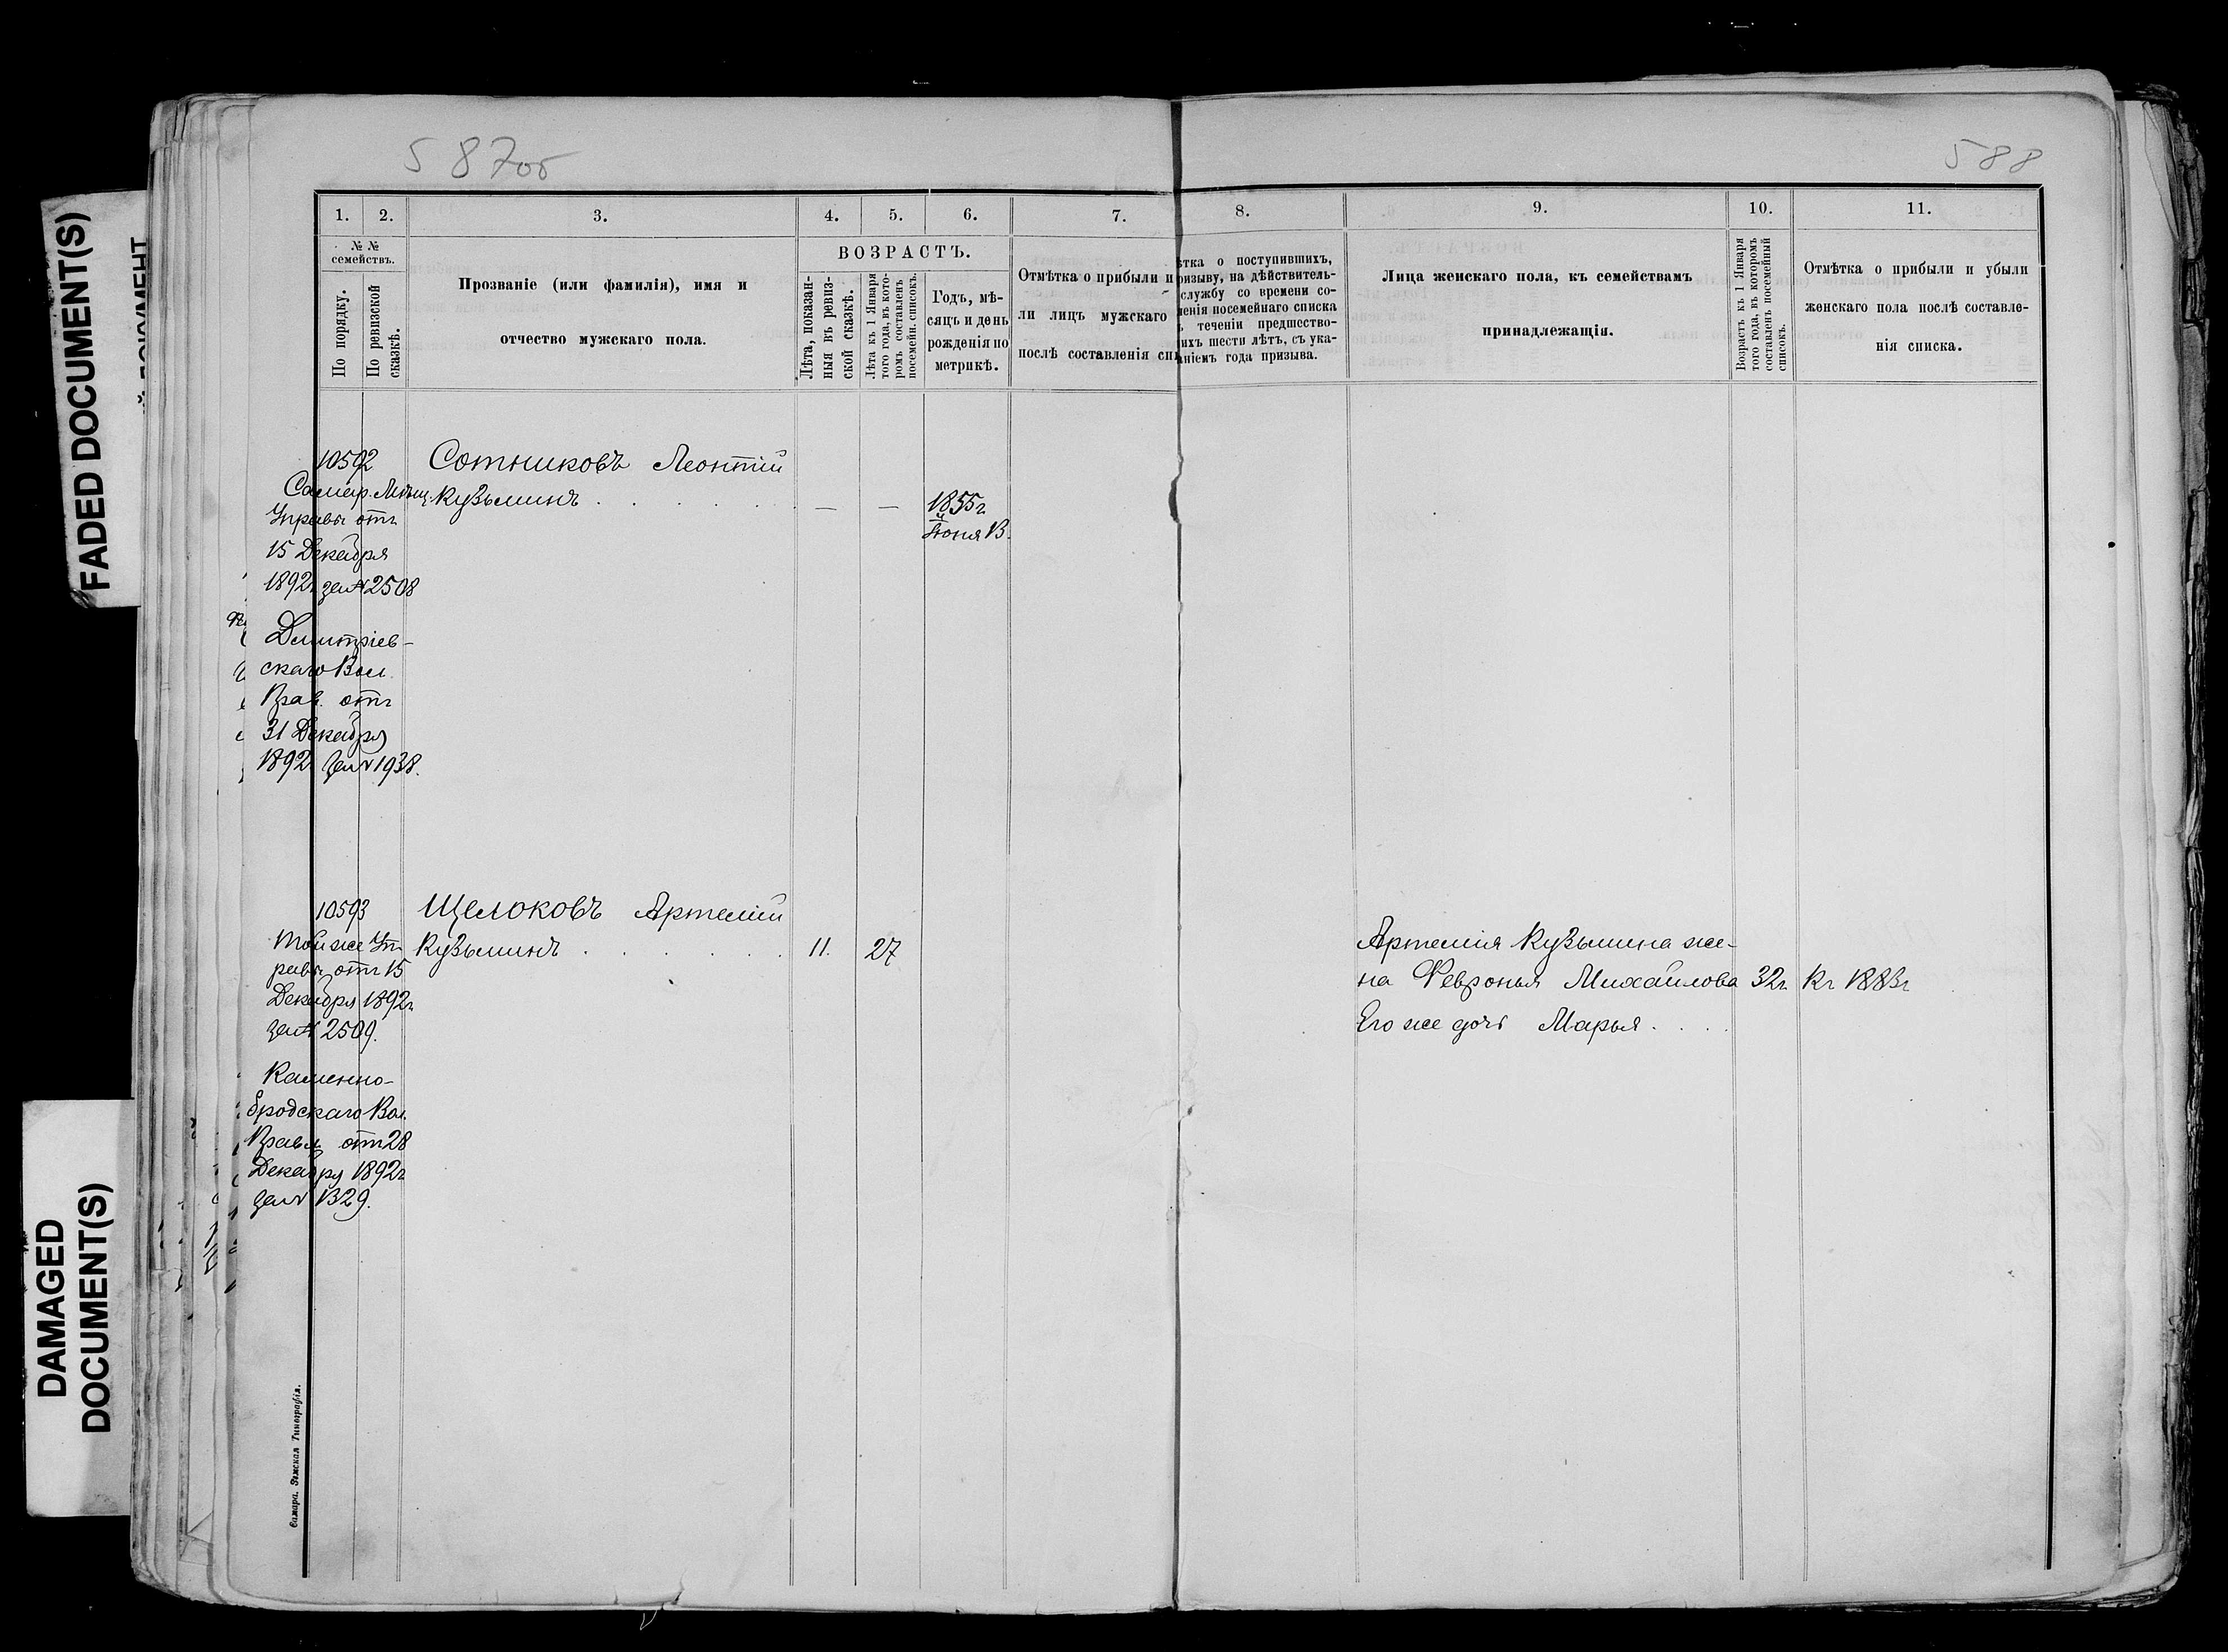 FADED DOCUMENT(S)
DAMAGED
DOCUMENT(S)
587об
588
1. 2. 3. 4. 5. 6. 7. 8. 9. 10. 11.
№ №
семействъ.
По порядку.
По ревизской
сказкѣ.
Прозваніе (или фамилія), имя и
отчество мужскаго пола.
ВОЗРАСТЪ.
Лѣта, показан-
ныя въ ревиз-
ской сказкѣ.
Лѣта къ 1 Января
того года, въ кото-
ромъ составленъ
посемейн. списокъ.
Годъ, мѣ-
сяцъ и день
рожденія по
метрикѣ.
Отмѣтка о прибыли и
ли лицъ мужскаго
послѣ составленія спи
ѣтка о поступившихъ,
ризыву, на дѣйствитель-
службу со времени со-
ленія посемейнаго списка
ъ теченіи предшество-
ихъ шести лѣтъ, съ ука-
ніемъ года призыва.
Лица женскаго пола, къ семействамъ
принадлежащія.
Возрастъ къ 1 Января
того года, въ которомъ
составленъ посемейный
списокъ.
Отмѣтка о прибыли и убыли
женскаго пола послѣ составле-
нія списка.
10592 Сотниковъ Леонтій
Самар. Мѣщ. Кузьминъ . . . . . — — 1855г.
Управы отъ
Іюня 13.
15 Декабря
1892г за № 2508
Дмитріев-
скаго Вол.
Прав. отъ
31 Декабря
1892г за № 1938.
10593 Щелоковъ Артемій
Той же Уп- Кузьминъ . . . . . . 11. 27
равы отъ 15
Декабря 1892г
за № 2509.
Каменно-
бродскаго Вол.
Правл. отъ 28
Декабря 1892г
за № 1329.
Артемія Кузьмина же-
на Февронья Михайлова 32г. Къ 1883г
Его же дочь Марья . . . .
Самара. Земская Типографія.